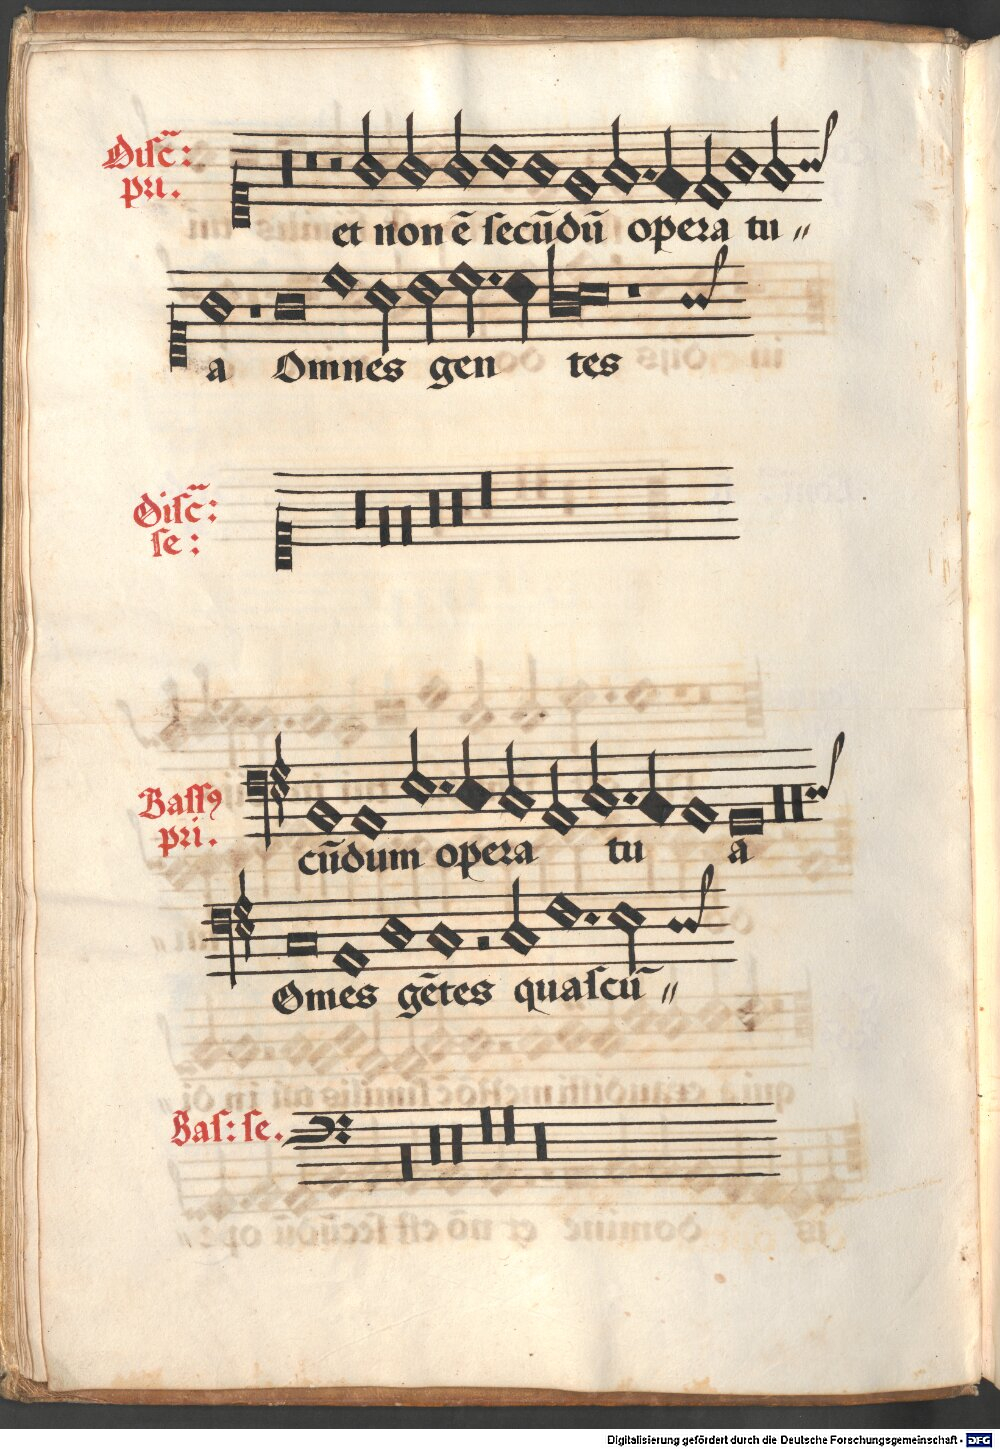 Discā:
pri.
et non ē secūdū opera tu〃
a Omnes gen tes
Discā:
se:
Bassꝰ
pri.
cūdum opera tu a
Omēs gētes quascū〃
Bas: se.
Digitalisierung gefördert durch die Deutsche Forschungsgemeinschaft - DFG